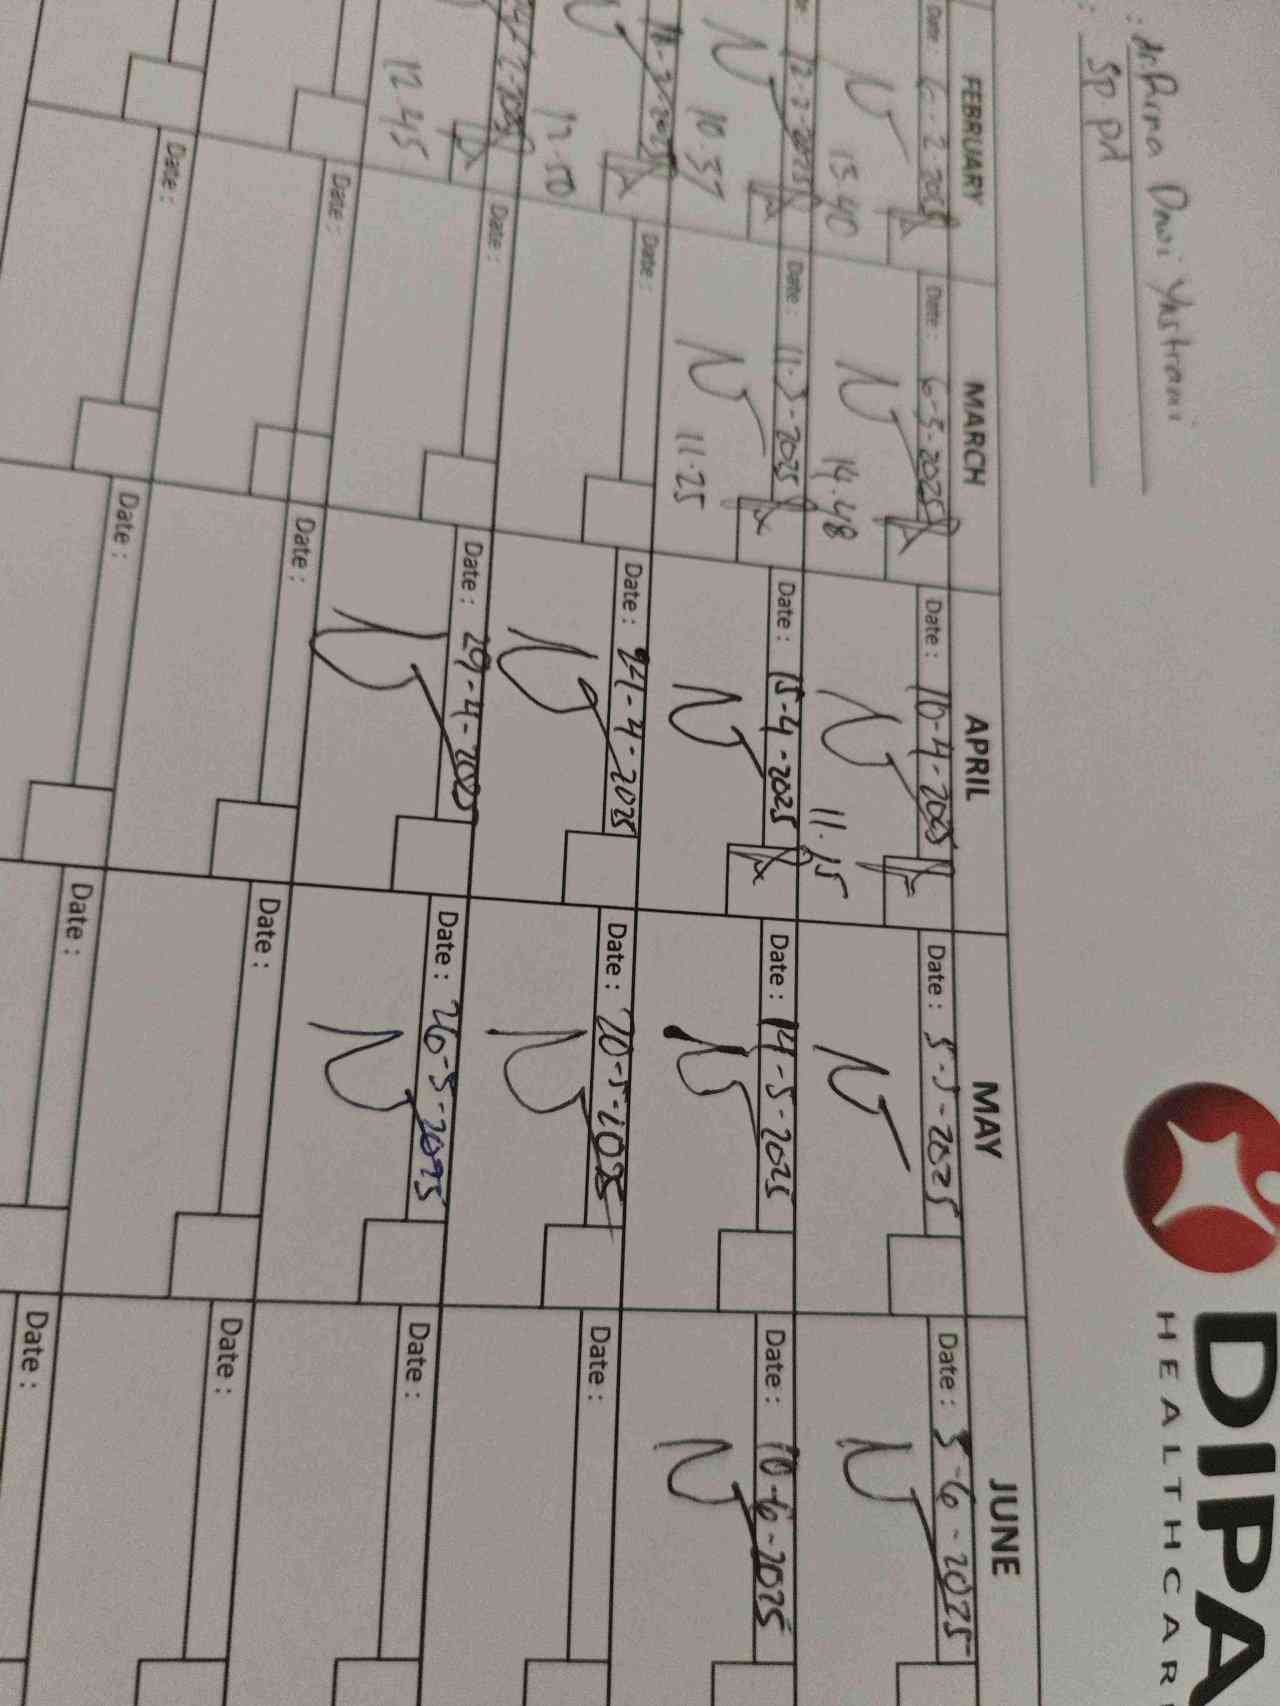 DIPA
HEALTHCAR
Sp pd
FEBRUARY MARCH APRIL MAY JUNE
Date: 6-2-2025 Date: 6-3-2025 Date: 10-4-2025 Date: 5-5-2025 Date: 3-6-2025
15.40 14.48 11.15
12-2-2025 Date: 11-3-2025 Date: 15-4-2025 Date: 14-5-2025 Date: 10-6-2025
10.37 11.25
Date: Date: 24-4-2025 Date: 20-5-2025 Date:
12.50
Date: Date: 29-4-2025 Date: 26-5-2025 Date:
12.45
Date: Date: Date: Date:
Date: Date: Date: Date: